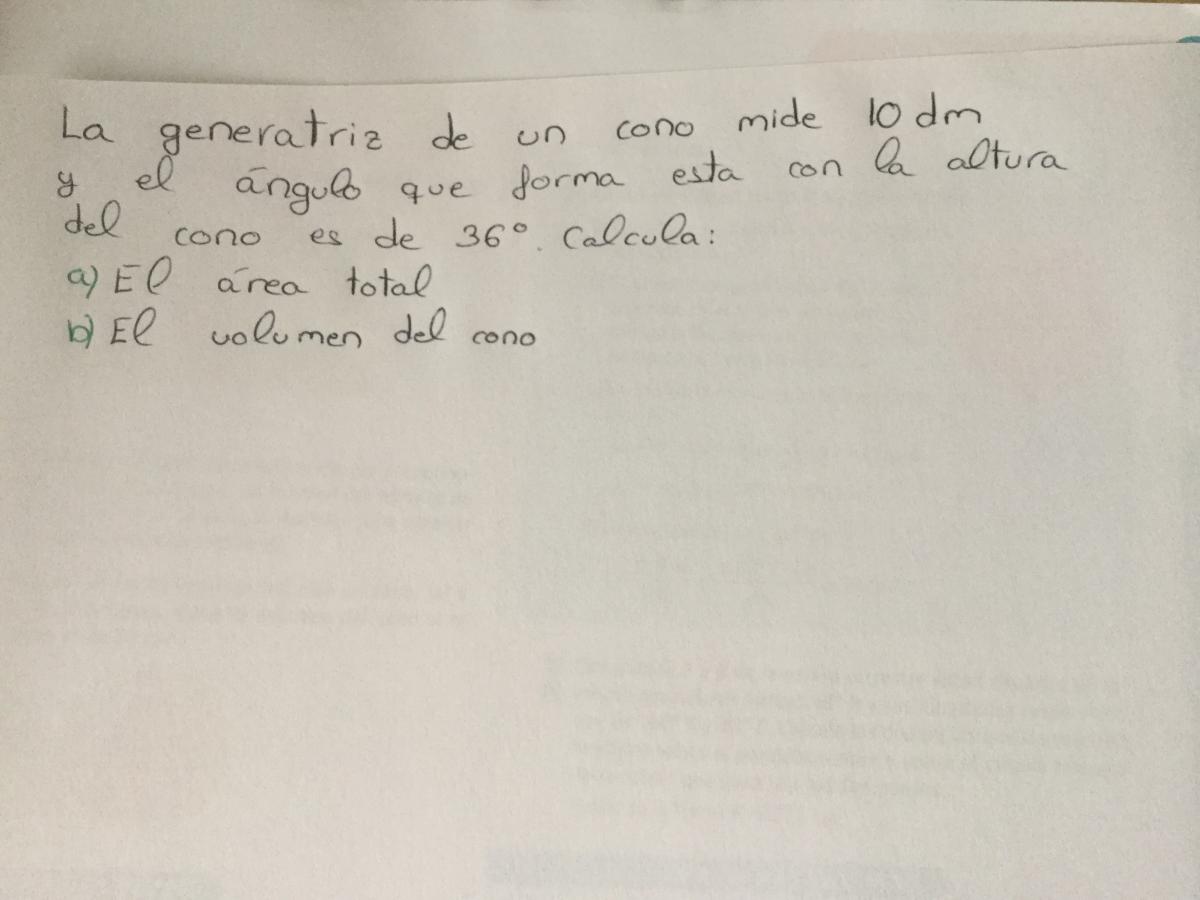 La generatriz de un cono mide 10 dm
y el ángulo que forma esta con la altura
del cono es de 36º. Calcula:
a) El área total
b) El volumen del cono